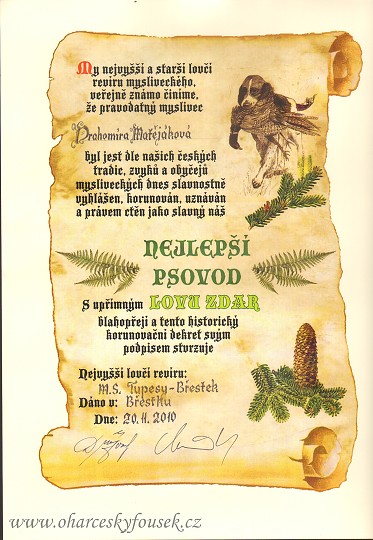 My nejvyšší a starší lovčí
revíru mysliveckého,
veřejně známo činíme,
že pravodatný myslivec
Drahomíra Matějáková
byl jest dle našich českých
tradic, zvyků a obyčejů
mysliveckých dnes slavnostně
vyhlášen, korunován, uznáván
a právem ctěn jako slavný náš
NEJLEPŠÍ
PSOVOD
S upřímným LOVU ZDAR
blahopřejí a tento historický
korunovační dekret svým
podpisem stvrzuje
Nejvyšší lovčí revíru:
M.S. Tupesy-Břestek
Dáno v: Břestku
Dne: 20.11.2010
www.oharceskyfousek.cz